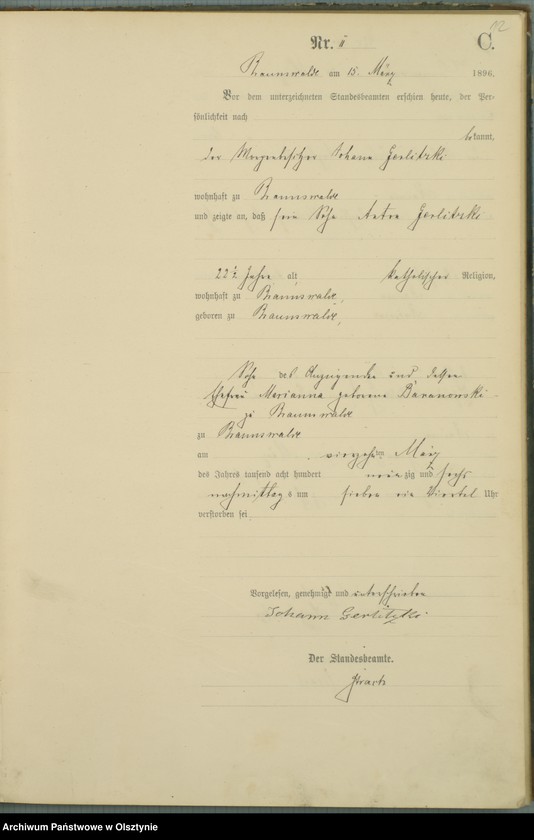 12
Nr. 11
C.
Braunswalde am 15. März 1896.
Vor dem unterzeichneten Standesbeamten erschien heute, der Per-
sönlichkeit nach
bekannt,
der Johann Gerlitzki
wohnhaft zu Braunswalde
und zeigte an, daß sein Sohn Anton Gerlitzki
22½ Jahre alt, katholischer Religion,
wohnhaft zu Braunswalde,
geboren zu Braunswalde,
Sohn des Anzeigenden und dessen
Ehefrau Marianna geborene Baranowski
zu Braunswalde
zu Braunswalde
am vierzehnten März
des Jahres tausend acht hundert neunzig und sechs
nachmittags um sieben ein Viertel Uhr
verstorben sei
Vorgelesen, genehmigt und unterschrieben
Johann Gerlitzki
Der Standesbeamte.
Archiwum Państwowe w Olsztynie